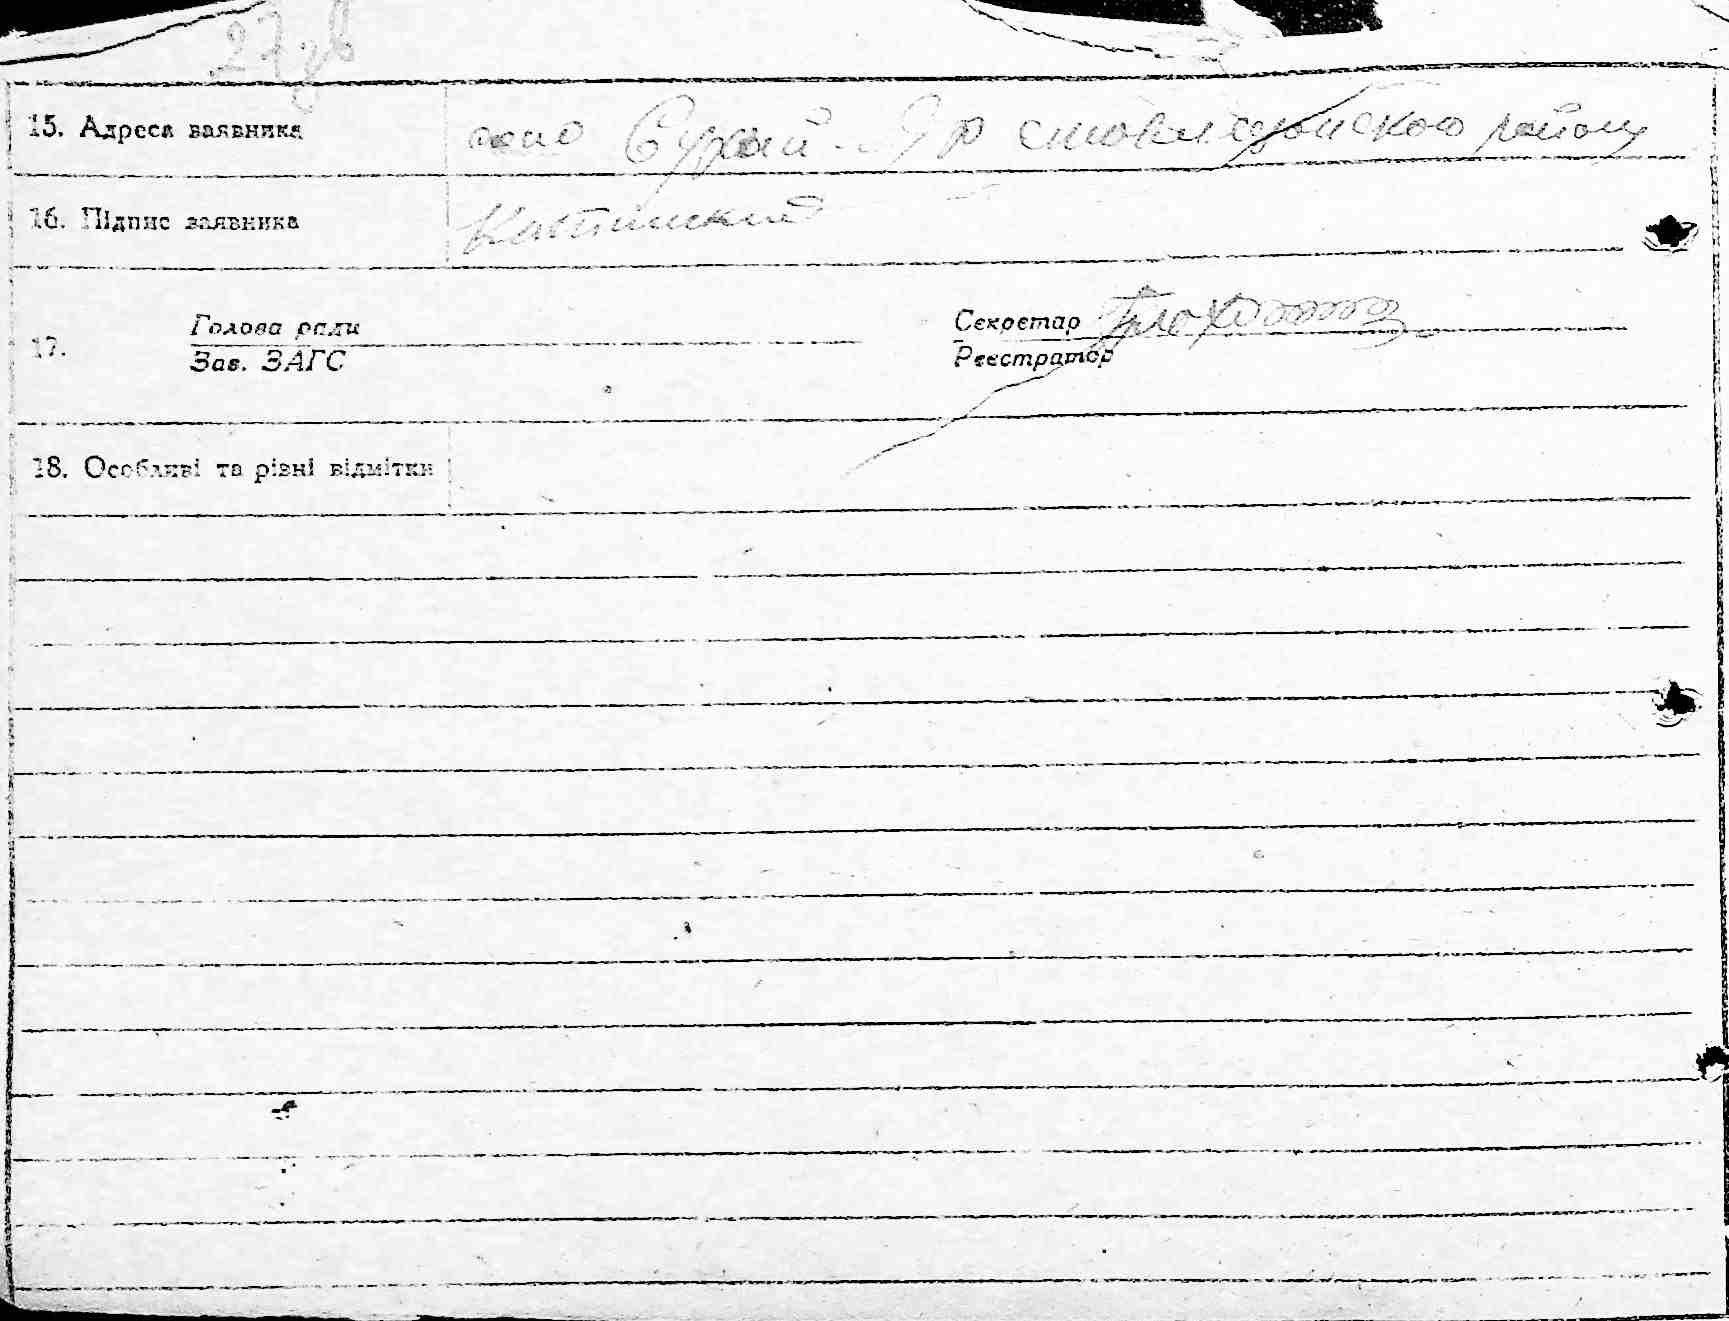 27 зв
15. Адреса заявника село Сухий-Яр
району
16. Підпис заявника
Голова ради Секретар
17.
Зав. ЗАГС Реєстратор
18. Особливі та різні відмітки